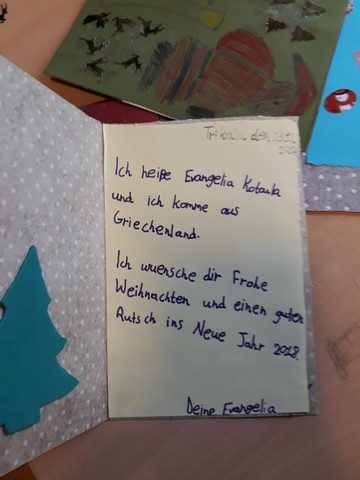 Trikala den
Ich heiße Evangelia
und ich komme aus
Griechenland.
Ich wuensche dir Frohe
Weihnachten und einen guten
Rutsch ins Neue Jahr 2018.
Deine Evangelia